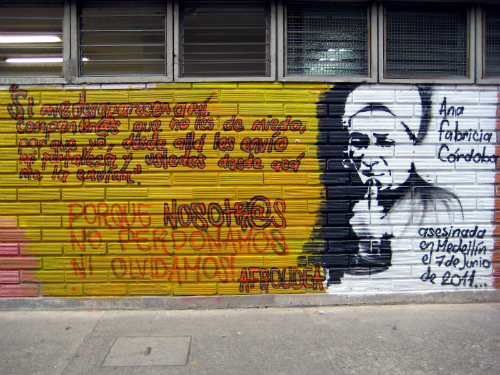 "Si me desaparecen a mi,
compañer@s que no les de miedo,
porque yo, desde allá les envio
mi fortaleza y ustedes desde acá
me la envian".
PORQUE NOSOTR@S
NO PERDONAMOS
NI OLVIDAMOS!
AFROUDEA
Ana
Fabricia
Córdoba
asesinada
en Medellín
el 7 de Junio
de 2011...